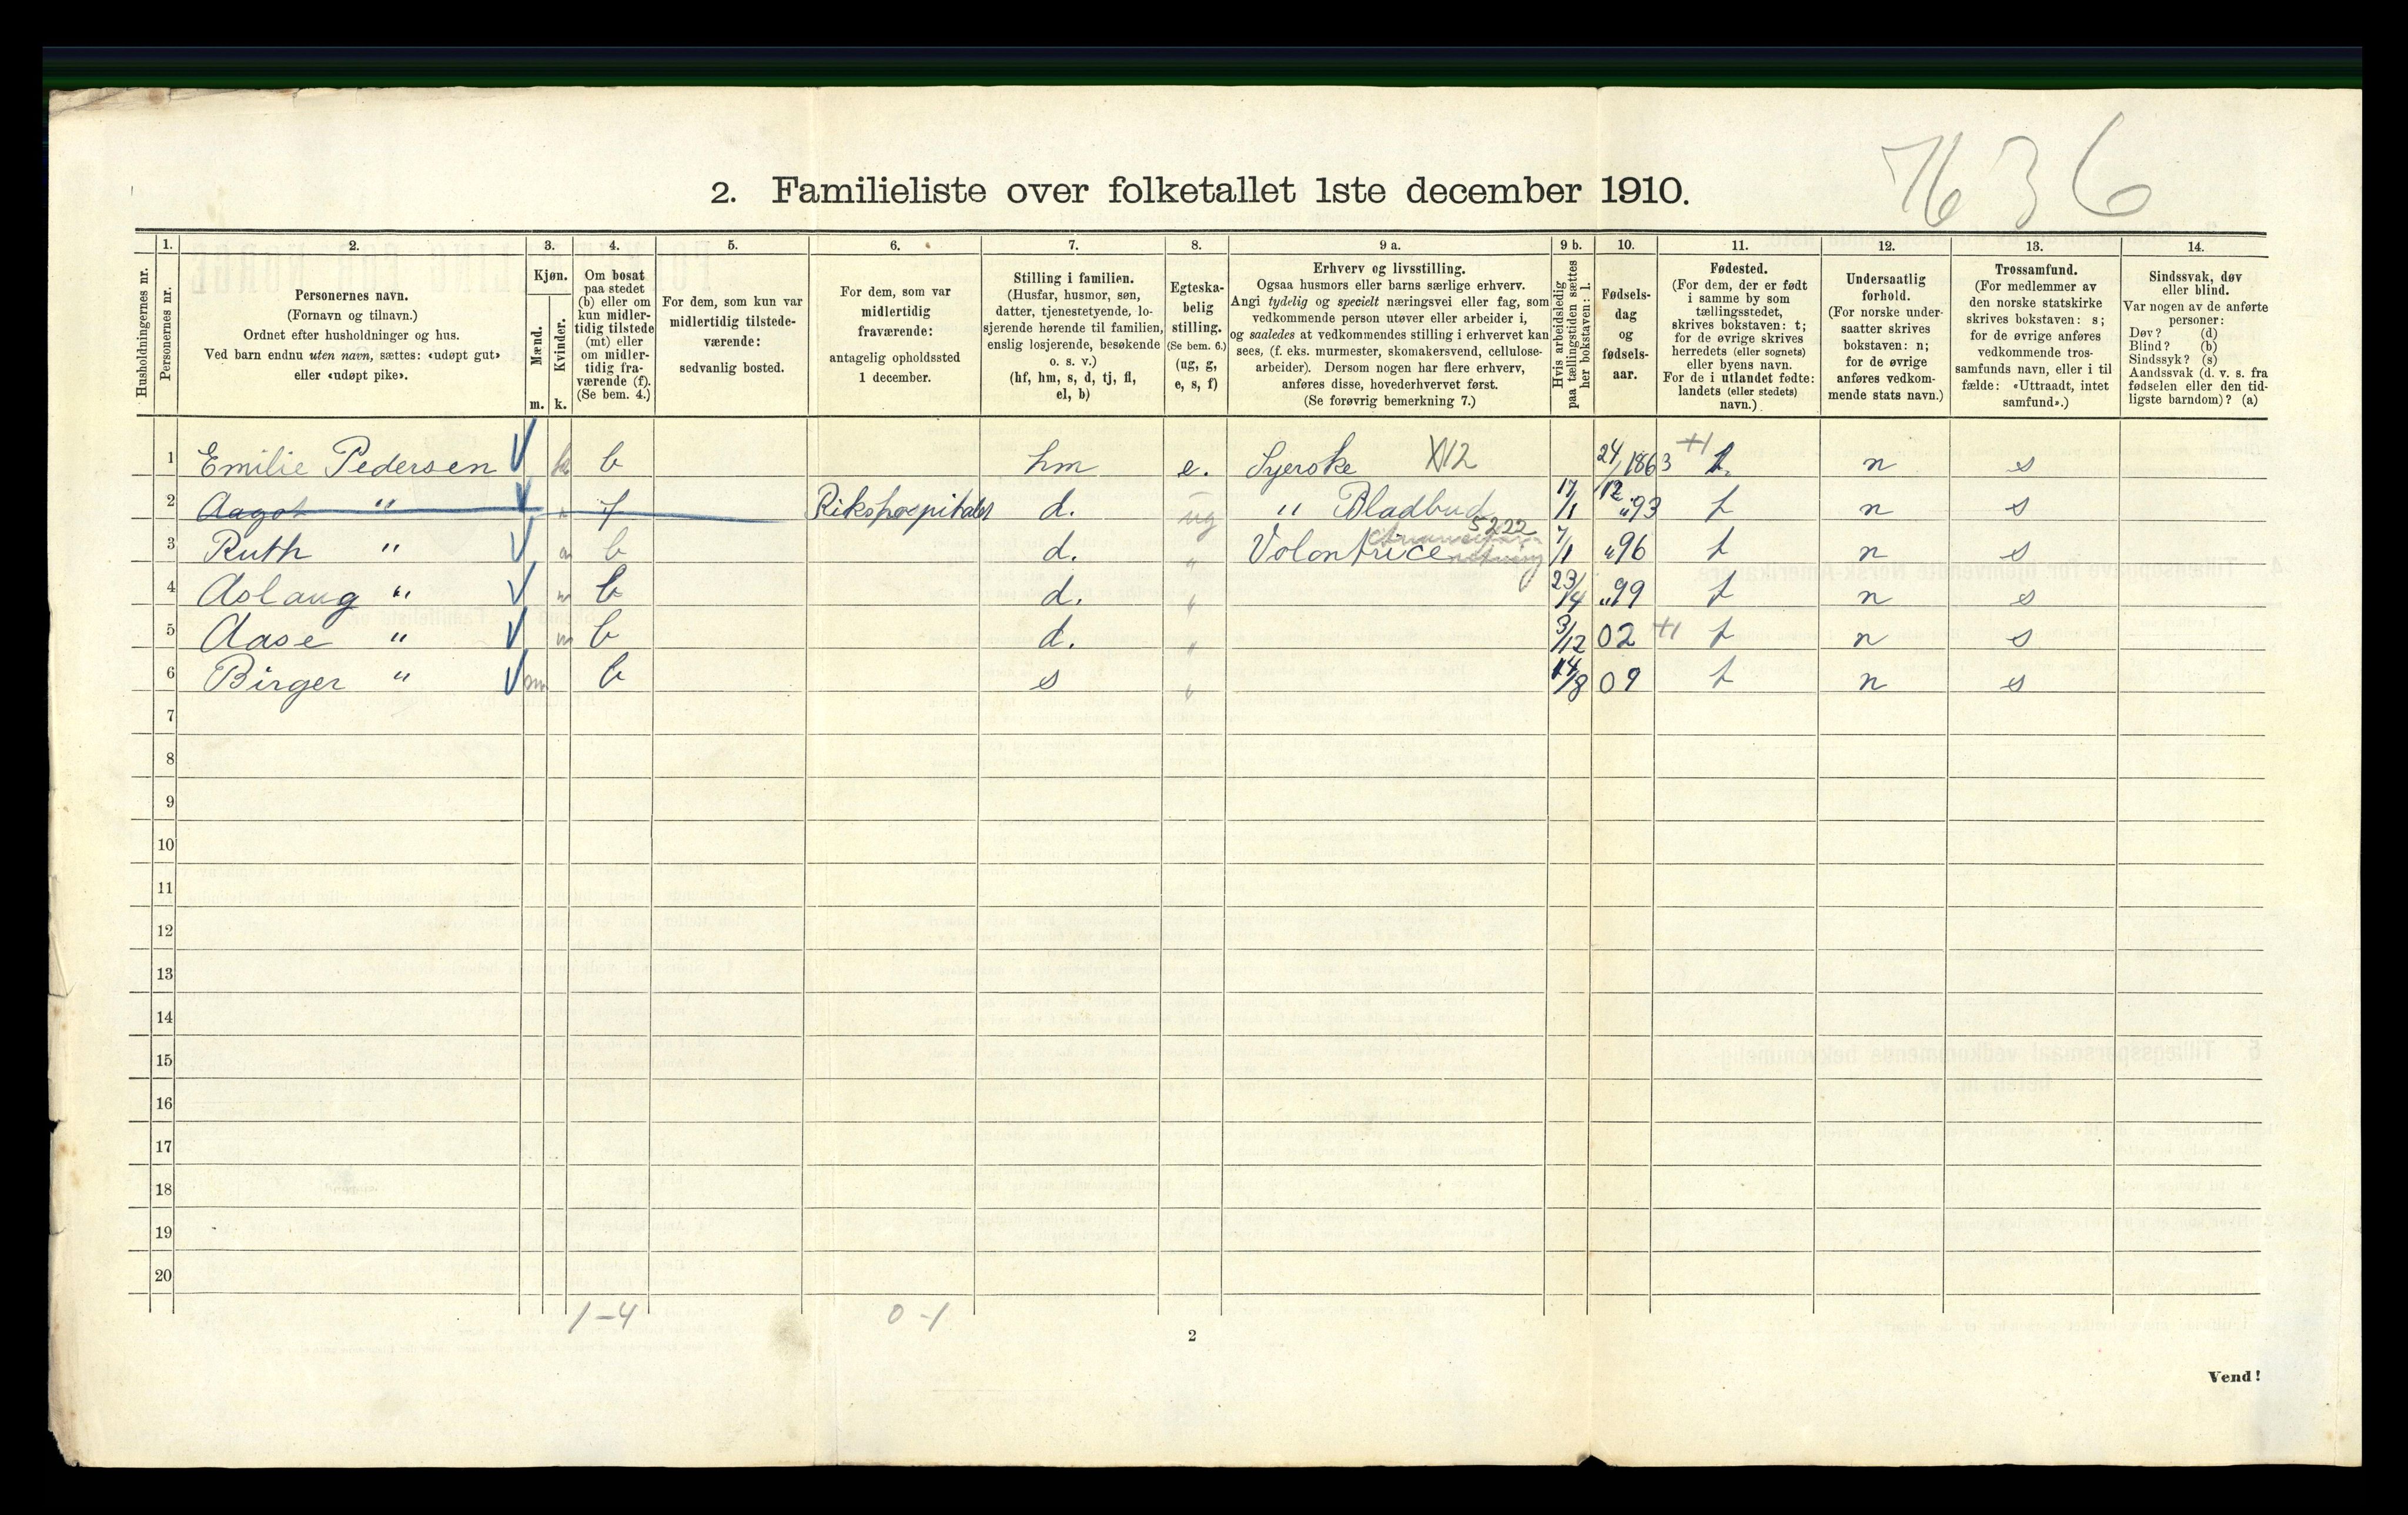 7636
2. Familieliste over folketallet 1ste december 1910.
Husholdningernes nr.
1. Personernes nr.
2. Personernes navn.
(Fornavn og tilnavn.)
Ordnet efter husholdninger og hus.
Ved barn endnu uten navn, sættes: «udøpt gut»
eller «udøpt pike».
3. Kjøn.
Mænd. m.
Kvinder. k.
4. Om bosat
paa stedet
(b) eller om
kun midler-
tidig tilstede
(mt) eller
om midler-
tidig fra-
værende (f).
(Se bem. 4.)
5. For dem, som kun var
midlertidig tilstede-
værende:
sedvanlig bosted.
6. For dem, som var
midlertidig
fraværende:
antagelig opholdssted
1 december.
7. Stilling i familien.
(Husfar, husmor, søn,
datter, tjenestetyende, lo-
sjerende hørende til familien,
enslig losjerende, besøkende
o. s. v.)
(hf, hm, s, d, tj, fl,
el, b)
8. Egteska-
belig
stilling.
(Se bem. 6.)
(ug, g,
e, s, f)
9 a. Erhverv og livsstilling.
Ogsaa husmors eller barns særlige erhverv.
Angi tydelig og specielt næringsvei eller fag, som
vedkommende person utøver eller arbeider i,
og saaledes at vedkommendes stilling i erhvervet kan
sees, (f. eks. murmester, skomakersvend, cellulose-
arbeider). Dersom nogen har flere erhverv,
anføres disse, hovederhvervet først.
(Se forøvrig bemerkning 7.)
9 b. Hvis arbeidsledig
paa tællingstiden sættes
her bokstaven: l.
10. Fødsels-
dag
og
fødsels-
aar.
11. Fødested.
(For dem, der er født
i samme by som
tællingsstedet,
skrives bokstaven: t;
for de øvrige skrives
herredets (eller sognets)
eller byens navn.
For de i utlandet fødte:
landets (eller stedets)
navn.)
12. Undersaatlig
forhold.
(For norske under-
saatter skrives
bokstaven: n;
for de øvrige
anføres vedkom-
mende stats navn.)
13. Trossamfund.
(For medlemmer av
den norske statskirke
skrives bokstaven: s;
for de øvrige anføres
vedkommende tros-
samfunds navn, eller i til
fælde: «Uttraadt, intet
samfund».)
14. Sindssvak, døv
eller blind.
Var nogen av de anførte
personer:
Døv? (d)
Blind? (b)
Sindssyk? (s)
Aandssvak (d. v. s. fra
fødselen eller den tid-
ligste barndom)? (a)
1 Emilie Pedersen k b hm e. Syerske XII2 24/12 1863 t. n s
2 Aagot " f Rikshospitalet d. ug " Bladbud 17/1 "93 t n s
3 Ruth " b d. " Volontrice 5222 7/1 "96 t n s
4 Aslaug " b d. " 23/4 "99 t n s
5 Aase " b d. " 3/12 02 t n s
6 Birger " m b s " 14/8 09 t n s
7
8
9
10
11
12
13
14
15
16
17
18
19
20
1-4 0-1
2
Vend!